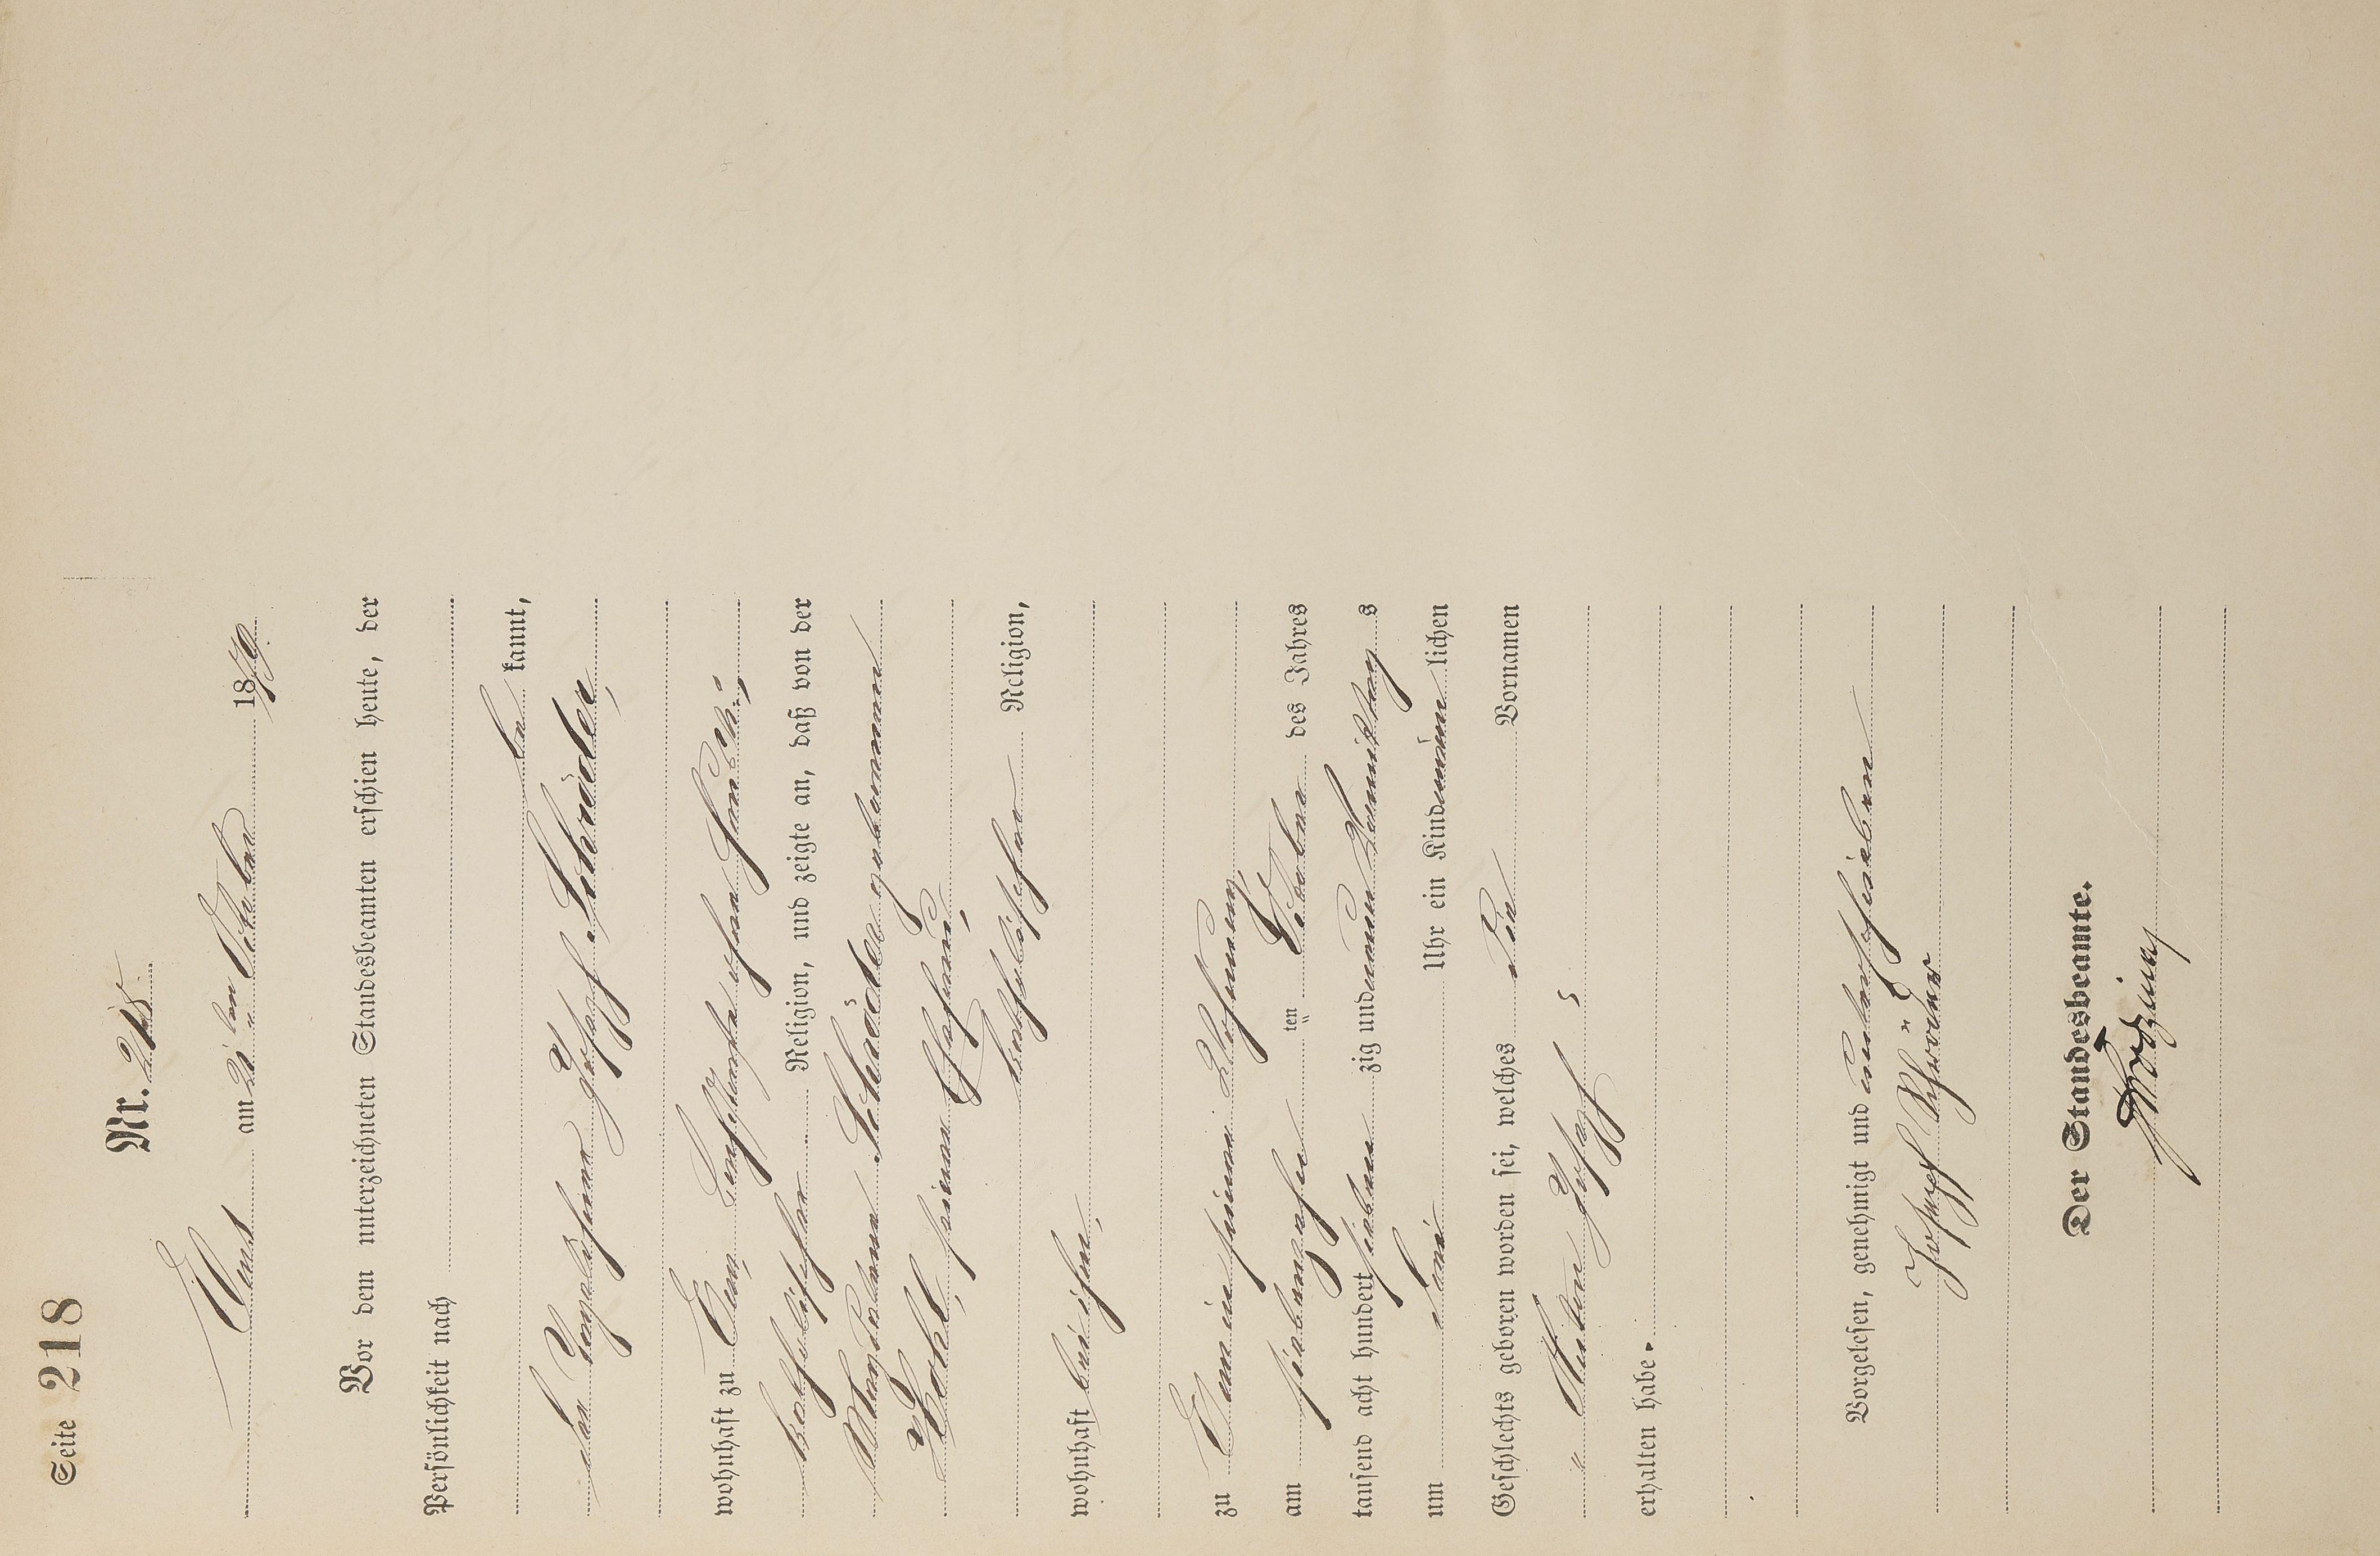 Seite 218
Nr. 218.
Ems am 21 ten Oktober 1879.
Vor dem unterzeichneten Standesbeamten erschien heute, der
Persönlichkeit nach
be kannt,
der Joseph Schröder,
wohnhaft zu Ems, Haus
katholischer Religion, und zeigte an, daß von der
Magdalena Schröder geborenen
Kohl, seiner Ehefrau,
katholischer Religion,
wohnhaft bei ihm,
zu Ems in seiner Wohnung,
am siebenzehn ten Oktober des Jahres
tausend acht hundert sieben zig und neun Vormittags
um drei Uhr ein Kind männ lichen
Geschlechts geboren worden sei, welches die Vornamen
" Anton Joseph "
erhalten habe.
Vorgelesen, genehmigt und unterschrieben
Joseph Schröder
Der Standesbeamte.